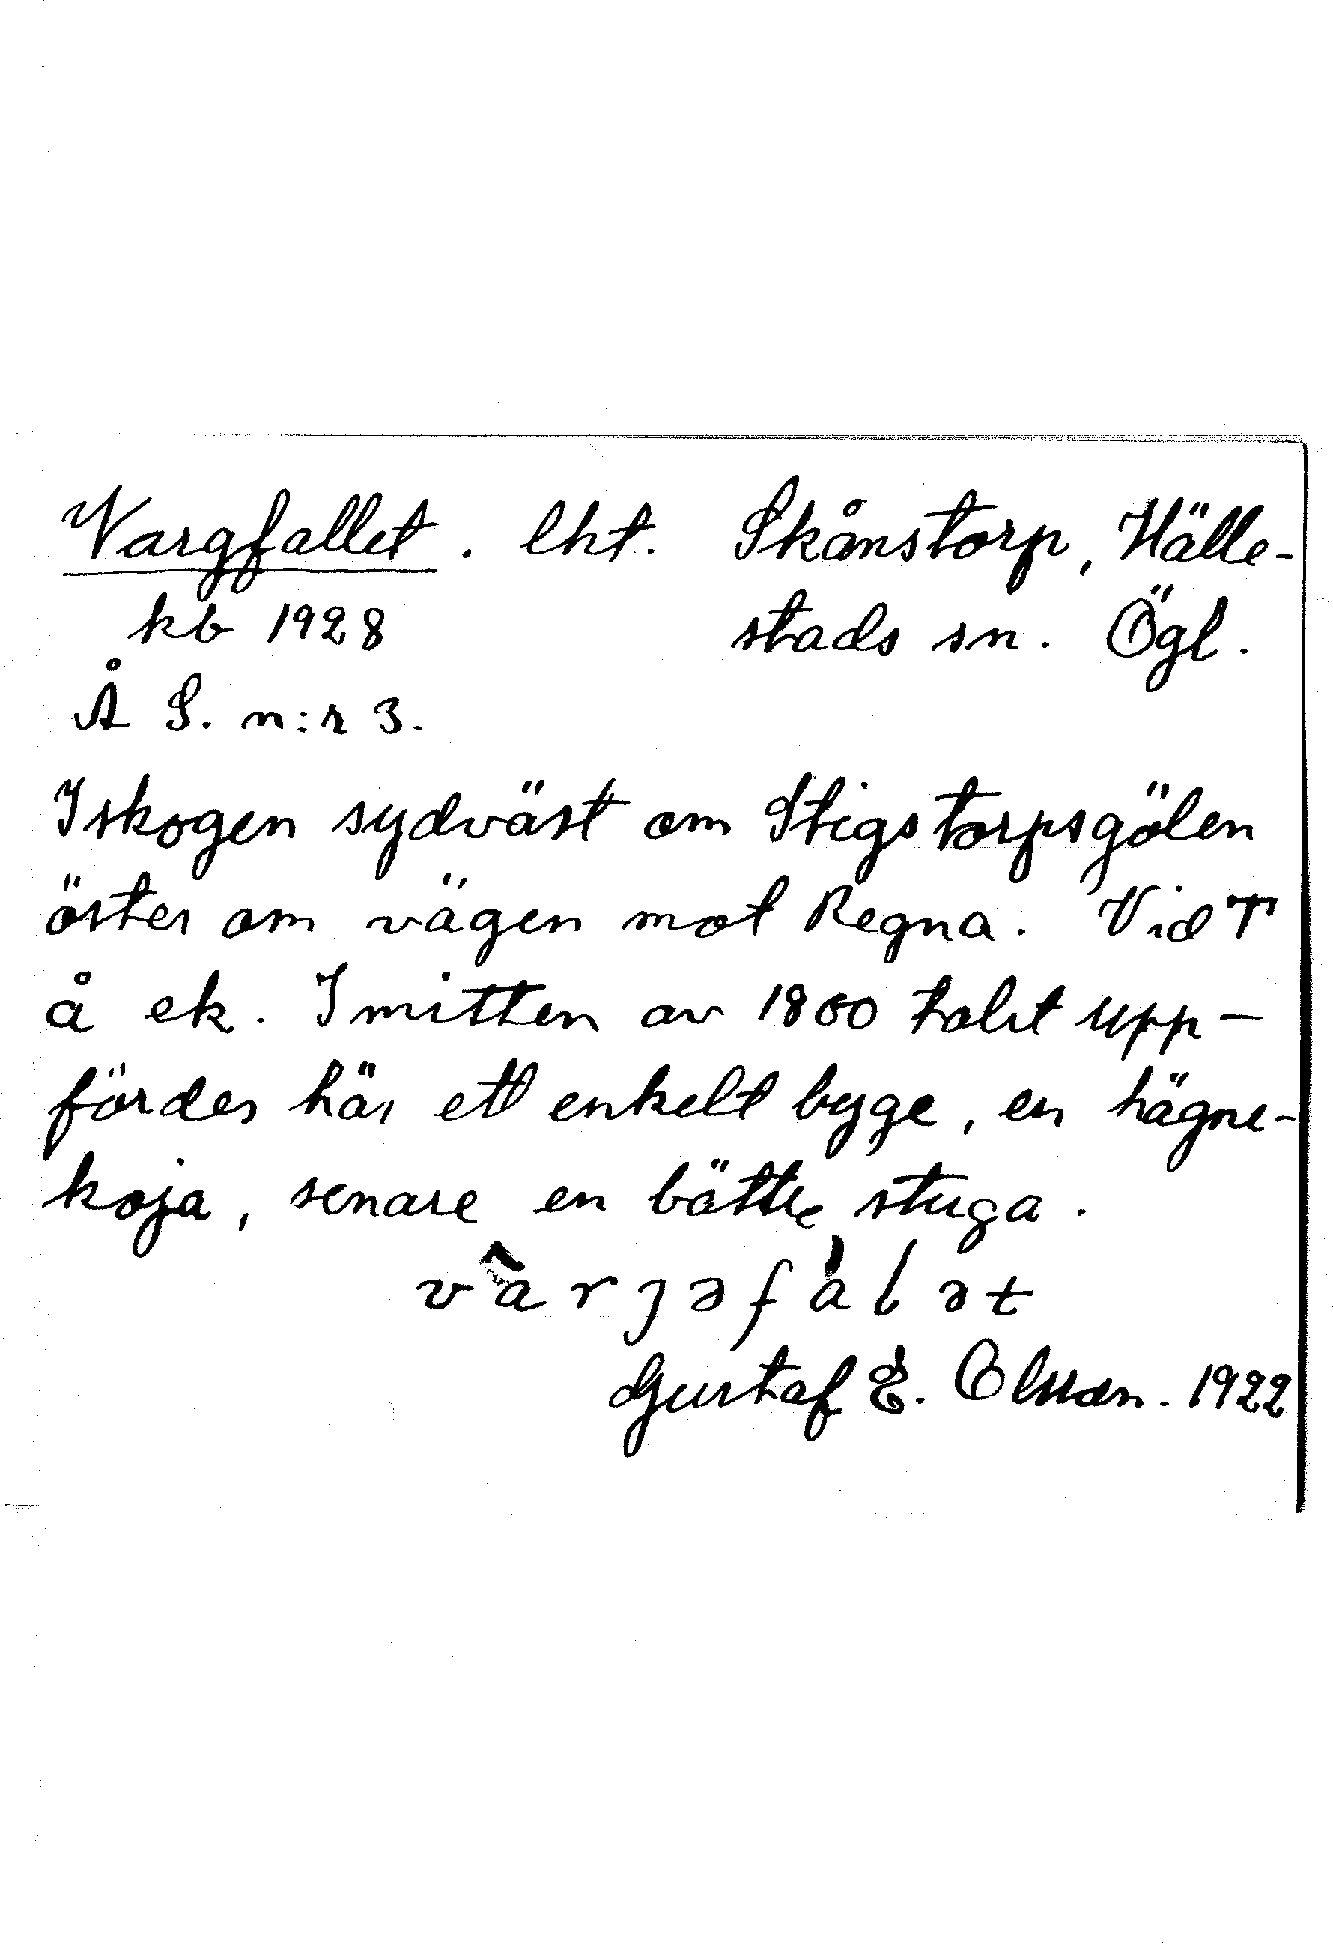 Vargfallet. lht. Skånstorp, Hälle-
kb 1928 stads sn. Ögl.
Å S. n:r 3.
I skogen sydväst om Stigstorpsgölen
öster om vägen mot Regna. Vid T
å ek. I mitten av 1800 talet upp-
fördes här ett enkelt byge, en hägne-
koja, senare en bättre stuga.
vàrjəfálət
Gustaf E. Olsson. 1922